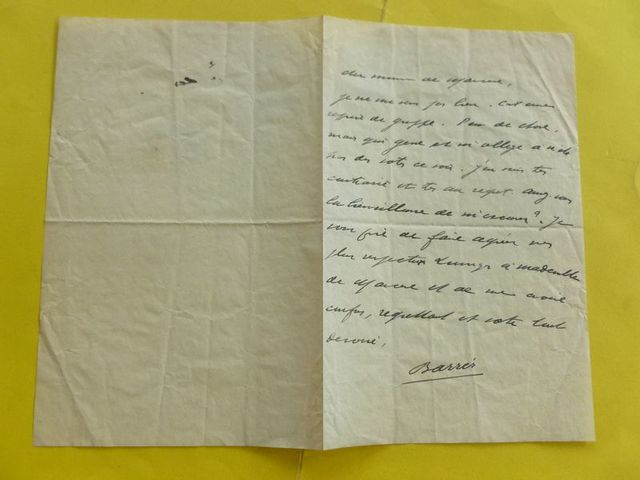 cher monsieur de
je ne me sens pas bien. C'est une
reprise de grippe. Peu de chose,
mais qui gêne et m'oblige à
pas des vôtres ce soir. J'en suis très
contrarié et très au regret. Aurez-vous
la bienveillance de m'excuser? Je
vous prie de faire agréer mes
plus respectueux hommages à mademoiselle
de et de me croire
confus, regrettant et votre tout
dévoué,
Barrès